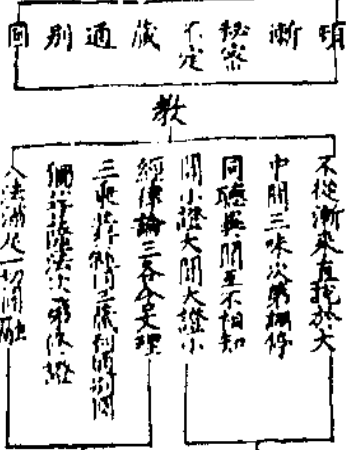 頓
漸
秘密
不定
藏
通
別
圓
教
不從漸來直說於大
中間三味次第調停
同聽異聞互不相知
聞小證大聞大證小
經律論三各含文理
三乘
次第修證
八法滿足一切圓融